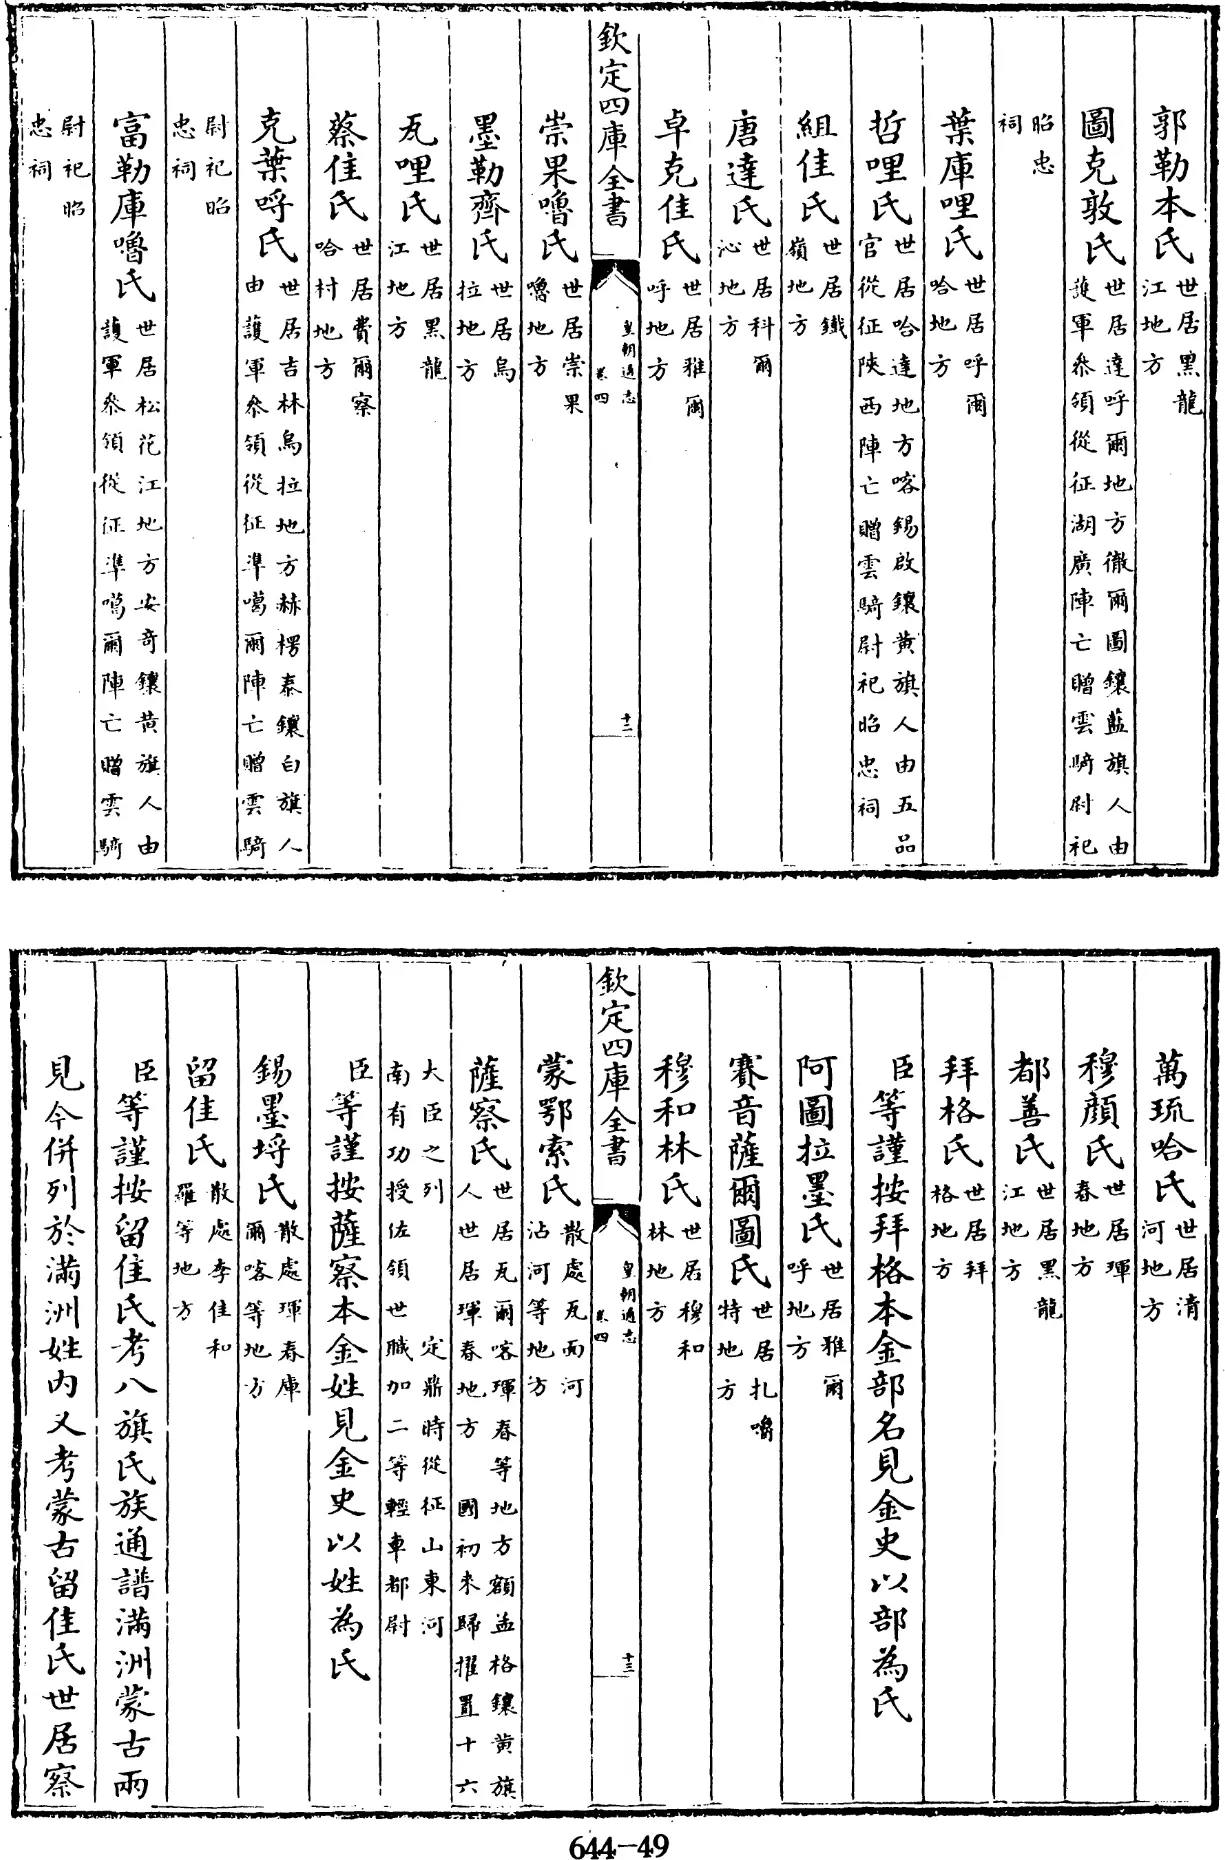 郭勒本氏世居黑龍江地方
圖克敦氏世居達呼爾地方徹爾圖鑲藍旗人由護軍叅領從征湖廣陣亡贈雲騎尉祀
昭忠祠
葉庫哩氏世居呼爾哈地方
哲哩氏世居哈達地方喀錫啟鑲黄旗人由五品官從征陜西陣亡贈雲騎尉祀昭忠祠
組佳氏世居鐵嶺地方
唐達氏世居科爾沁地方
卓克佳氏世居雅爾呼地方
欽定四庫全書
皇朝通志
卷四
十二
崇果嚕氏世居崇果嚕地方
墨勒齊氏世居烏拉地方
瓦哩氏世居黑龍江地方
蔡佳氏世居費爾察哈村地方
克葉呼氏世居吉林烏拉地方赫楞泰鑲白旗人由護軍叅領從征準噶爾陣亡贈雲騎
尉祀昭忠祠
富勒庫嚕氏世居松花江地方安奇鑲黄旗人由護軍叅領從征準噶爾陣亡贈雲騎
尉祀昭忠祠
萬琉哈氏世居清河地方
穆顔氏世居琿春地方
都善氏世居黑龍江地方
拜格氏世居拜格地方
臣等謹按拜格本金部名見金史以部為氏
阿圖拉墨氏世居雅爾呼地方
賽音薩爾圖氏世居扎嚕特地方
穆和林氏世居穆和林地方
欽定四庫全書
皇朝通志
卷四
十三
蒙鄂索氏散處瓦面河沾河等地方
薩察氏世居瓦爾喀琿春等地方額孟格鑲黄旗人世居琿春地方 國初來歸擢置十六
大臣之列 定鼎時從征山東河南有功授佐領世職加二等輕車都尉
臣等謹按薩察本金姓見金史以姓為氏
錫墨埒氏散處琿春庫爾喀等地方
留佳氏散處李佳和羅等地方
臣等謹按留佳氏考八旗氏族通譜滿洲蒙古兩
見今併列於滿洲姓内又考蒙古留佳氏世居察
644-49